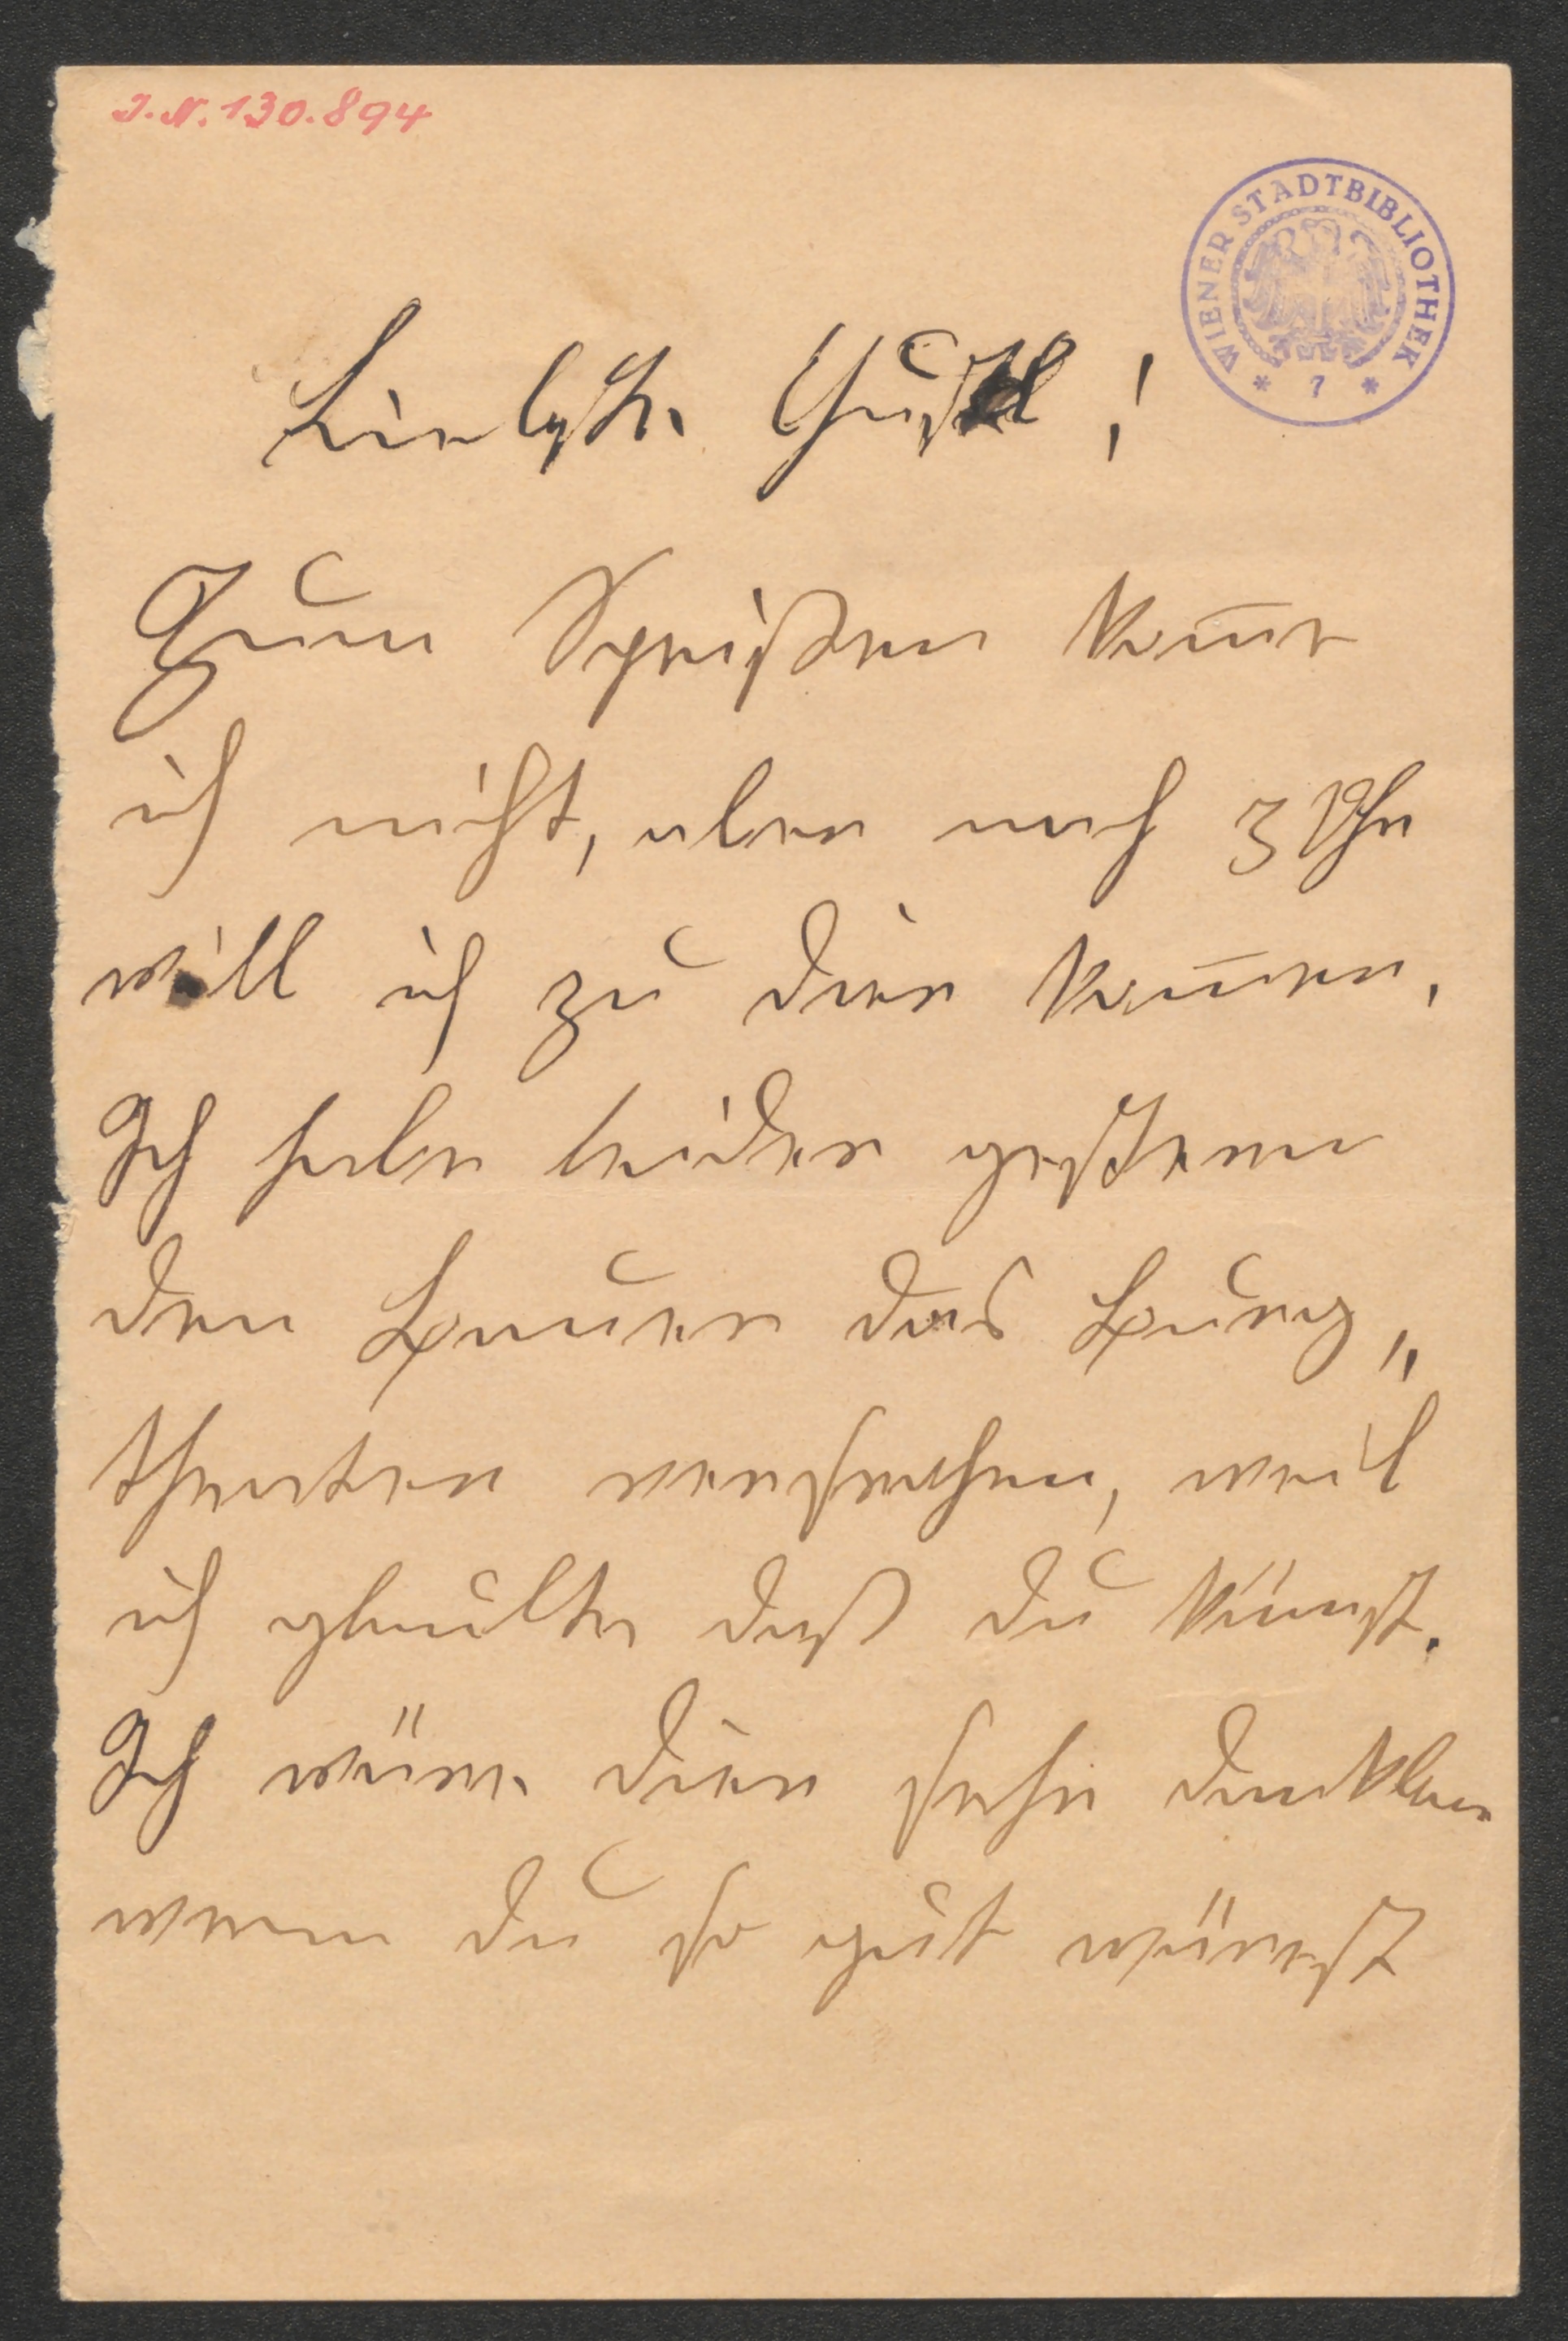 J.N. 130.894
WIENER STADTBIBLIOTHEK
* 7 *
Liebste Gustl!
Zum Speißen kom̅e
ich nicht, aber nach 3 Uhr
will ich zu dier kom̅en.
Ich habe leider gestern
den Lauser das Burg„
theater versprochen, weil
ich glaubte daß du kom̅st.
Ich wäre dier sehr dankbar
wenn du so gut wärest